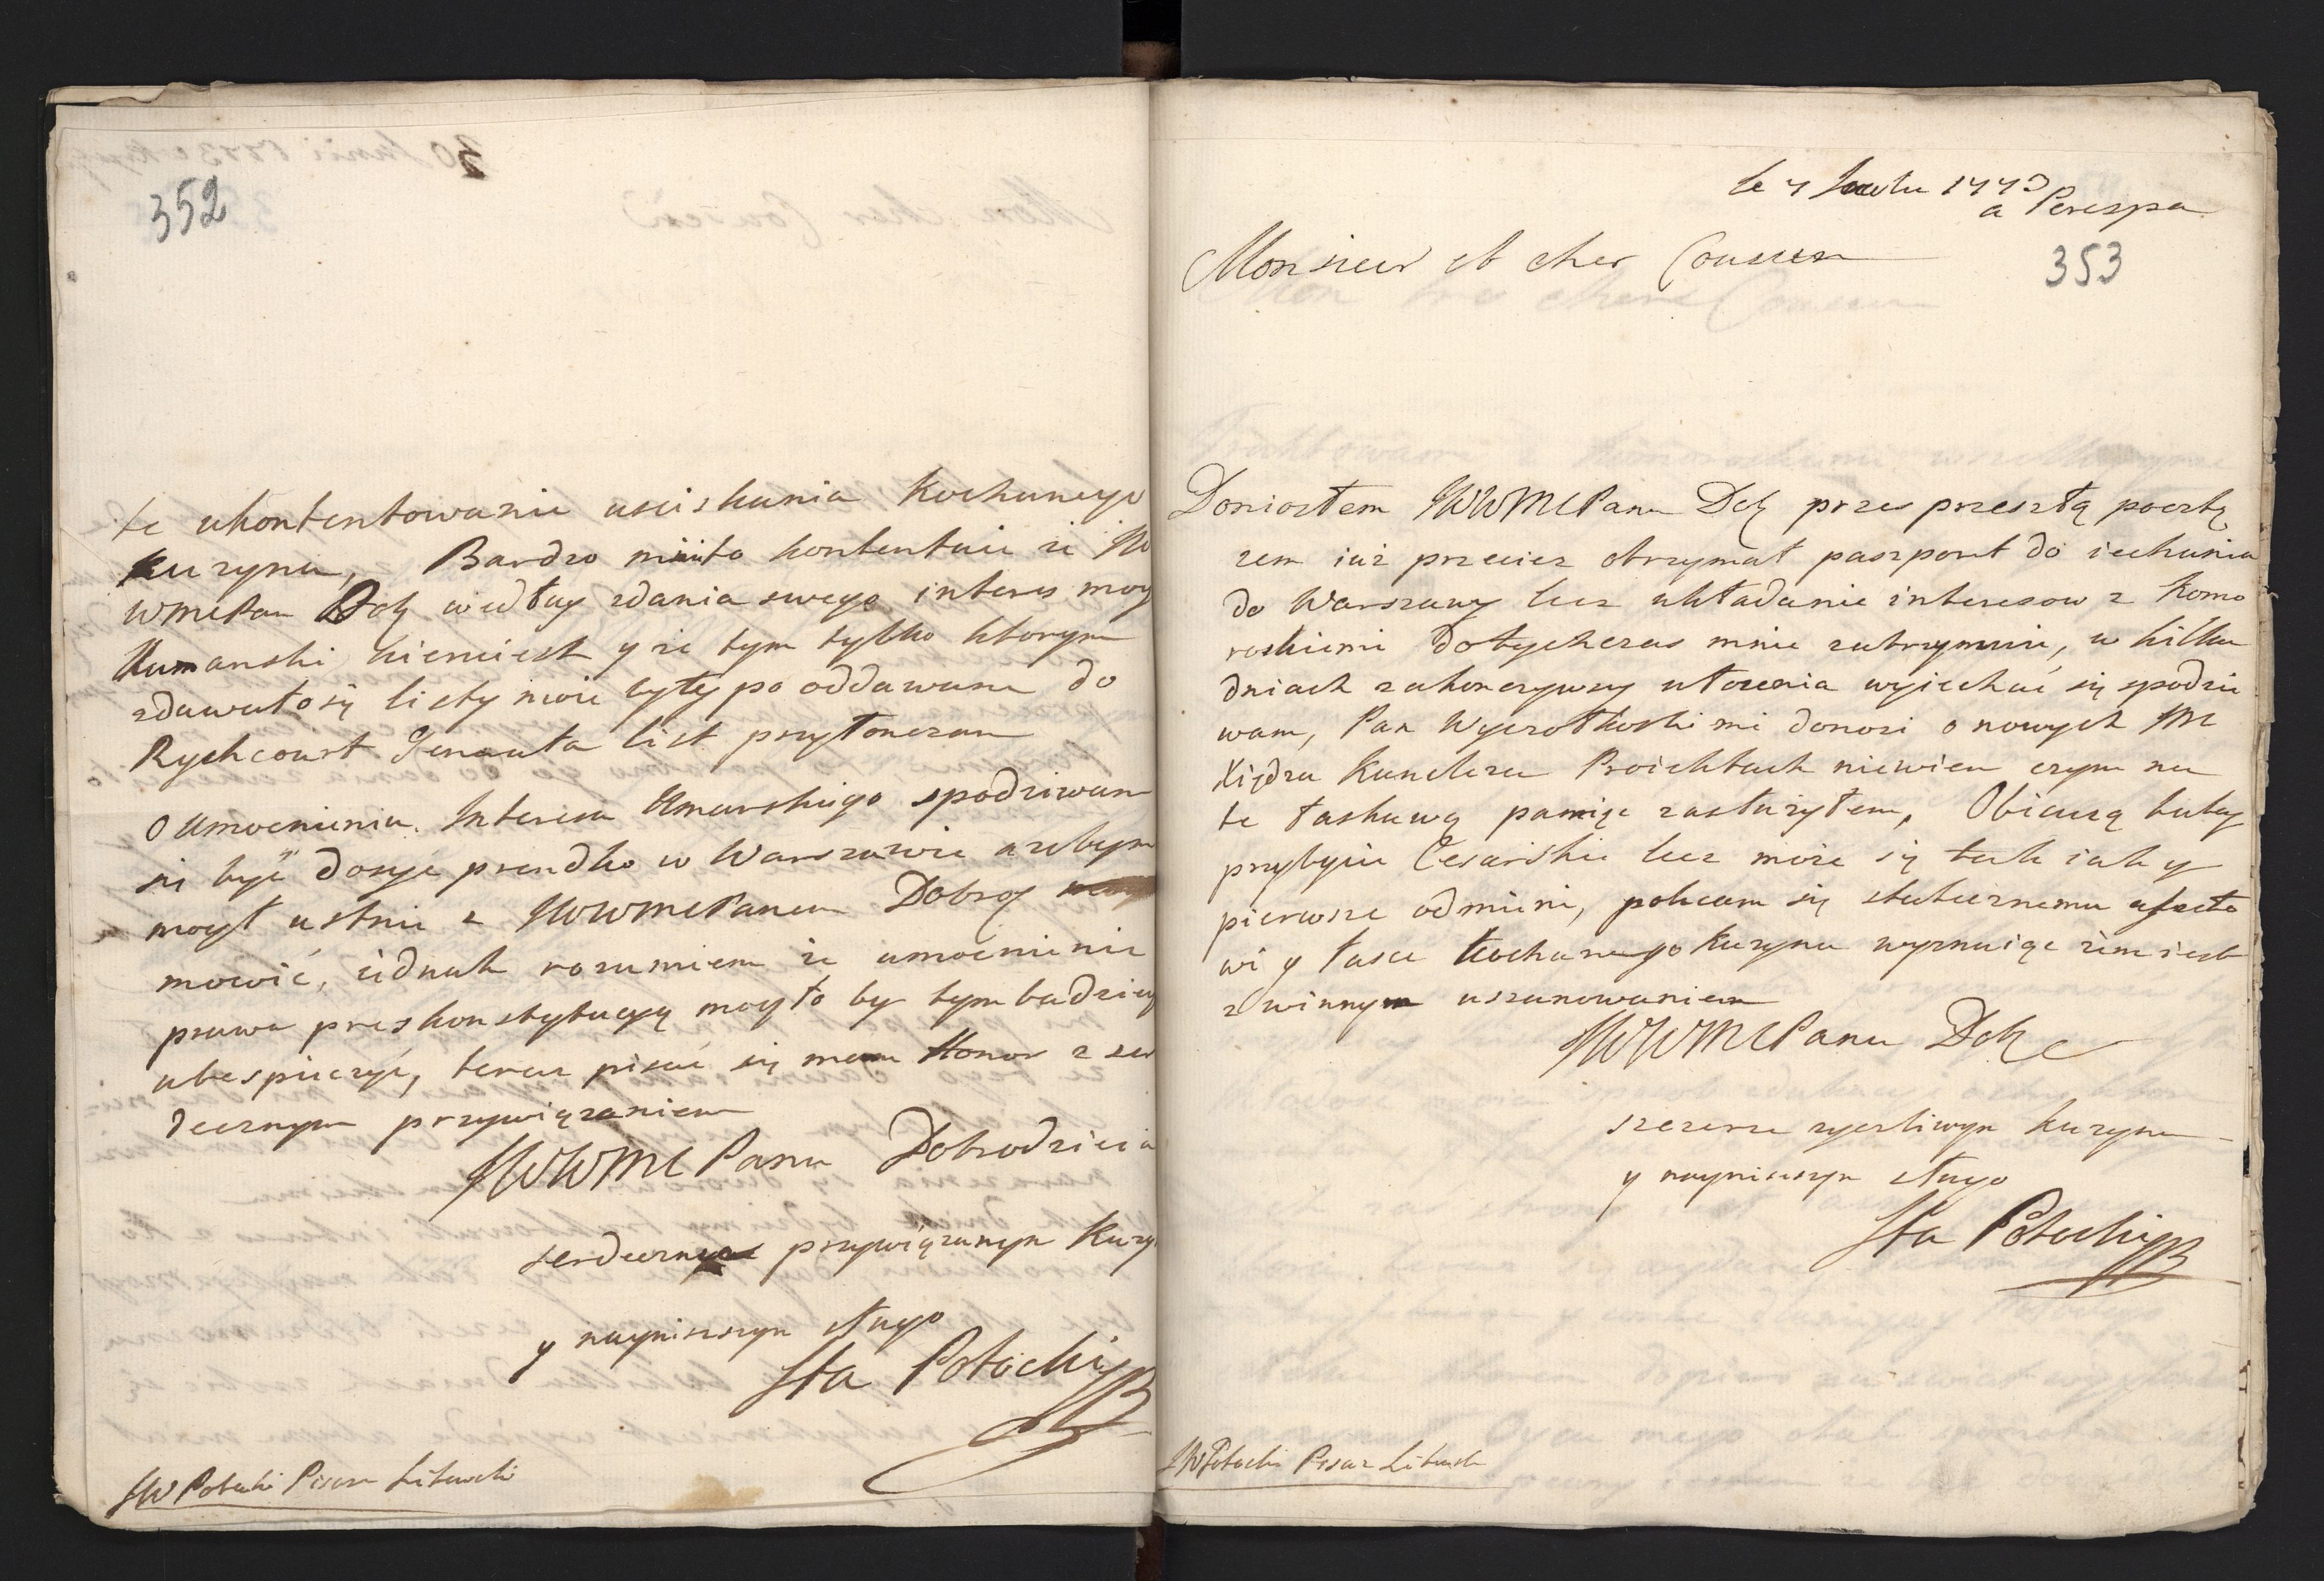 352
te ukontentowanie usciskania Kochanego
Kuzyna, Bardzo miito kontentuie ze JW
WMCPan Dob wiedług zdania swego interes moy
Humanski kieruiesz y ze tym tylko ktorym
zdawało się listy moie były po oddawane do
Rychcourt Jenerała list przyłonczam
O Umocnienia Interesu Umanskiego spodziwam
się być dosyć prendko w Warszawie azebym
mogł ustnie z JWWMCPanem Dobrog
mowić, iednak rozumiem ze umocnienie
prawa przes konstytucyą mogło by tym badziey
ubespieczyć, teraz pisać się mam Honor z ser
decznym przywiązaniem
JWWMCPana Dobrodzieia
serdecznym przywiązanym Kuzy
y nayniszszym sługo
Sta Potocki
JW Potocki Pisarz Litewski
le 7 1773
a Perespa
353
Monsieur et cher Cousin
Doniosłem JWWMCPanu Dob przes przeszłą pocztę
zem iuż przeciez otrzymał paszport do iechania
do Warszawy lecz układanie interesow z Komo
roskiemi dotychczas mnie zatrzymuie, w kilku
dniach zakonczywszy ułozenia wyiechać się spodzie
wam, Pan Wyczołkoski mi donosi o nowych JM
Xiędza Kanclerza Proiektach niewiem czym na
te łaskawą pamięc zasłużyłem, Obiecuią tutay
przybycie Cesarskie lecz może się tak iak y
pierwsze odmieni, polecam się statecznemu afekto
wi y łasce kochanego Kuzyna wyznaiąc zem iest
z winnym uszanowaniem
JWWMCPana Dob
szczerze zyczliwym kuzynem
y nayniszszym sługo
Sta Potocki
JWPotocki Pisarz Litewsk